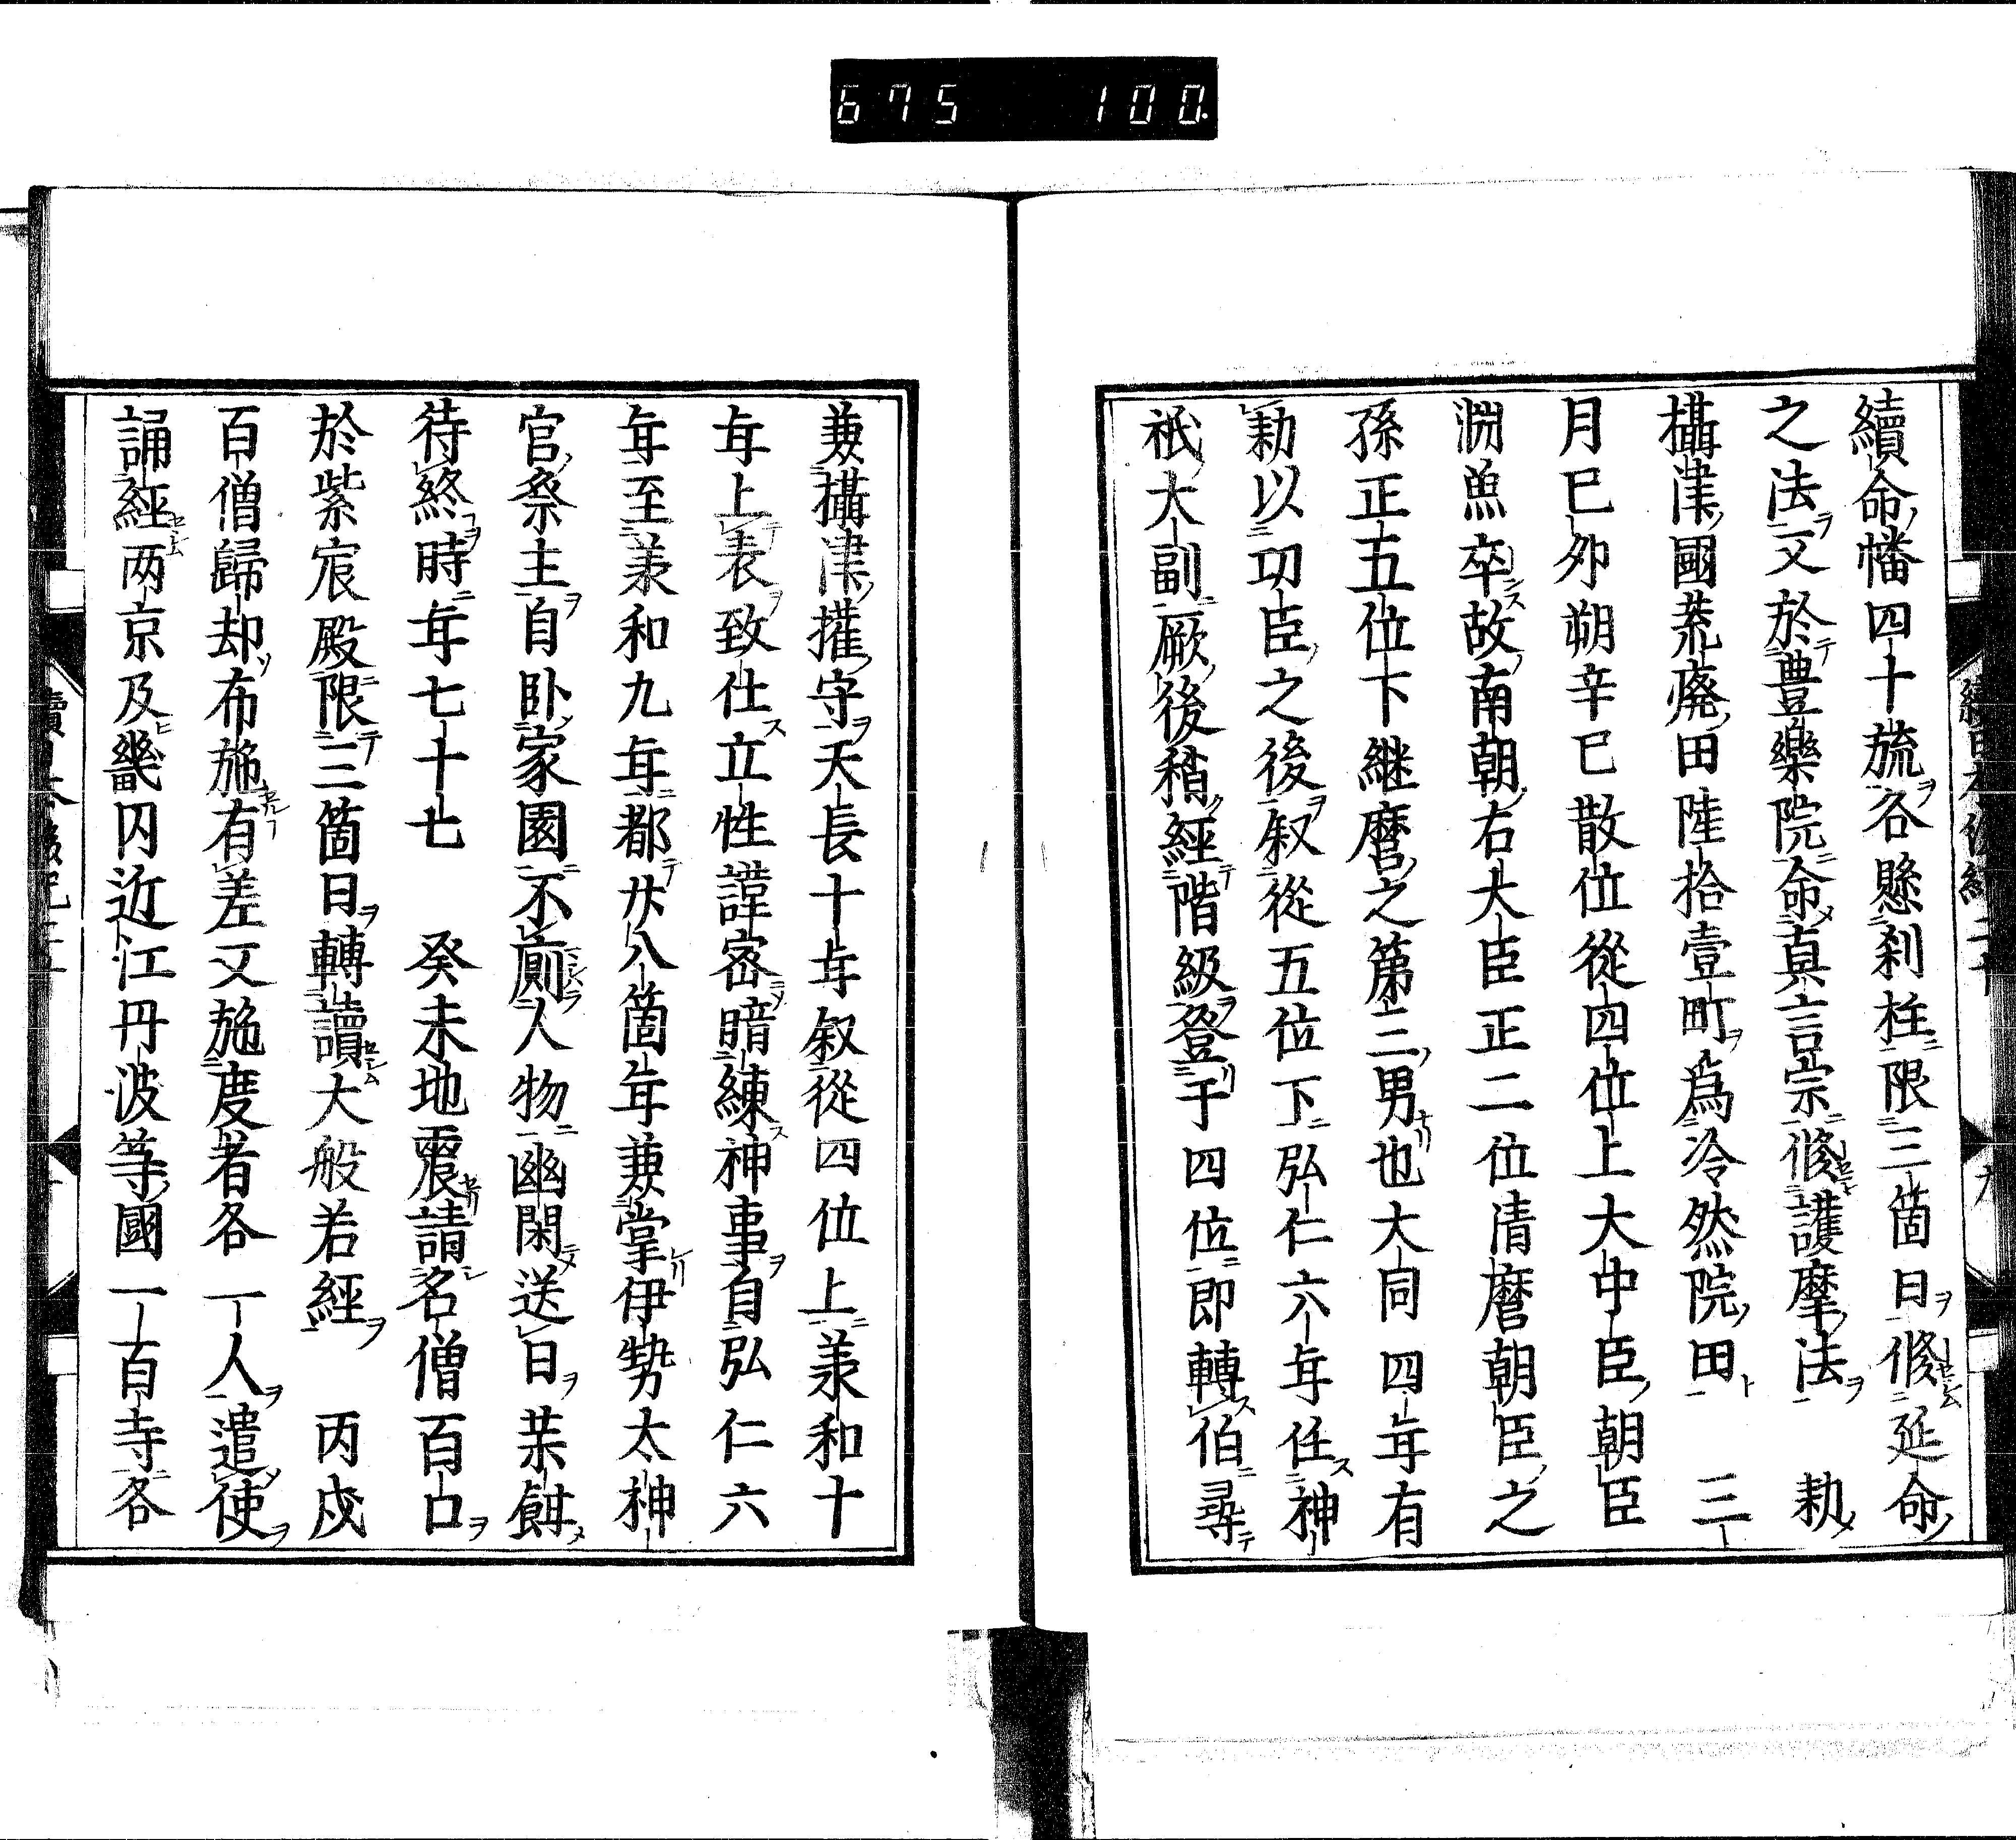 675 100.
續命幡四十旒各懸刹柱限三箇日修延命
之法又於豊樂院命真言宗修護摩法 勅
攝津國荒廢田陸拾壹町爲冷然院田 三
月己夘朔辛巳散位從四位上大中臣朝臣
淵魚卒故南朝右大臣正二位清麿朝臣之
孫正五位下継麿之第三男也大同四年有
勅以功臣之後叙從五位下弘仁六年任神
祇大副厥後稍經階級登于四位即轉伯尋
兼攝津權守天長十年叙從四位上兼和十
年上表致仕立性謹密暗練神事自弘仁六
年至兼和九年都廿八箇年兼掌伊勢太神
官祭主自卧家園不廁人物幽閑送日茱餌
待終時年七十七 癸未地震請名僧百口
於紫宸殿限三箇日轉讀大般若經 丙戌
百僧歸却布施有差又施度者各一人遣使
誦經两京及畿内近江丹波等國一百寺各